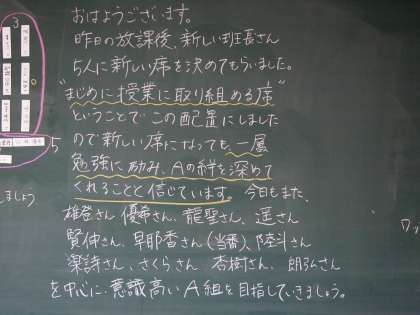 おはようございます。
昨日の放課後、新しい班長さん
5人に新しい席を決めてもらいました。
"まじめに授業に取り組める席"
ということでこの配置にしました
ので新しい席になっても、一層
勉強に励み、Aの絆を深めて
くれることと信じています。今日もまた、
雄登さん、優希さん、龍聖さん、遥さん
賢伸さん、早耶香さん(当番)、陸斗さん
楽詩さん、さくらさん、杏樹さん、朗弘さん
を中心に、意識高いA組を目指していきましょう。
3
5
しましょう